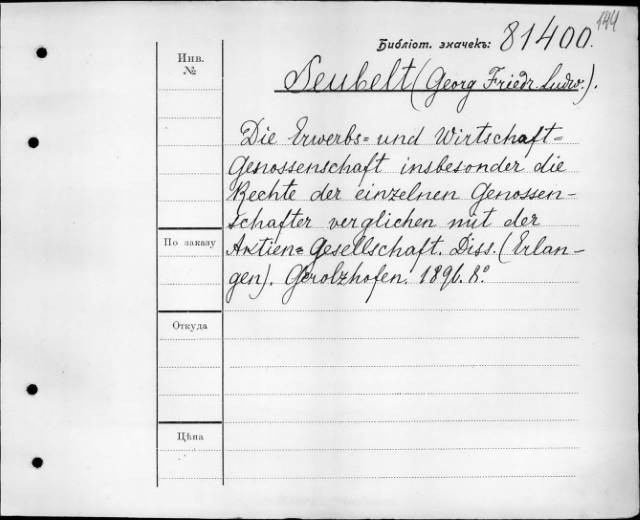 144
Библіот. значекъ: 81400.
Инв.
№
Seubelt (Georg Friedr. Ludw.).
Die Erwerbs= und Wirtschaft=
Genossenschaft insbesonder die
Rechte der einzelnen Genossen-
schafter verglichen mit der
Aktien=Gesellschaft. Diss. (Erlan-
gen). Gerolzhofen. 1896. 8°
По заказу
Откуда
Цѣна